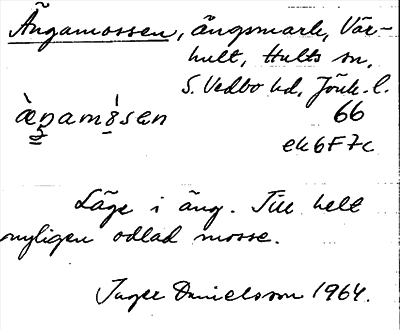 Ängamossen, ängsmark, Vär-
hult, Hults sn,
S. Vedbo hd, Jönk. l.
66
ek6F7c
Läge i äng. Till helt
nyligen odlad mosse.
Danielsson 1964.